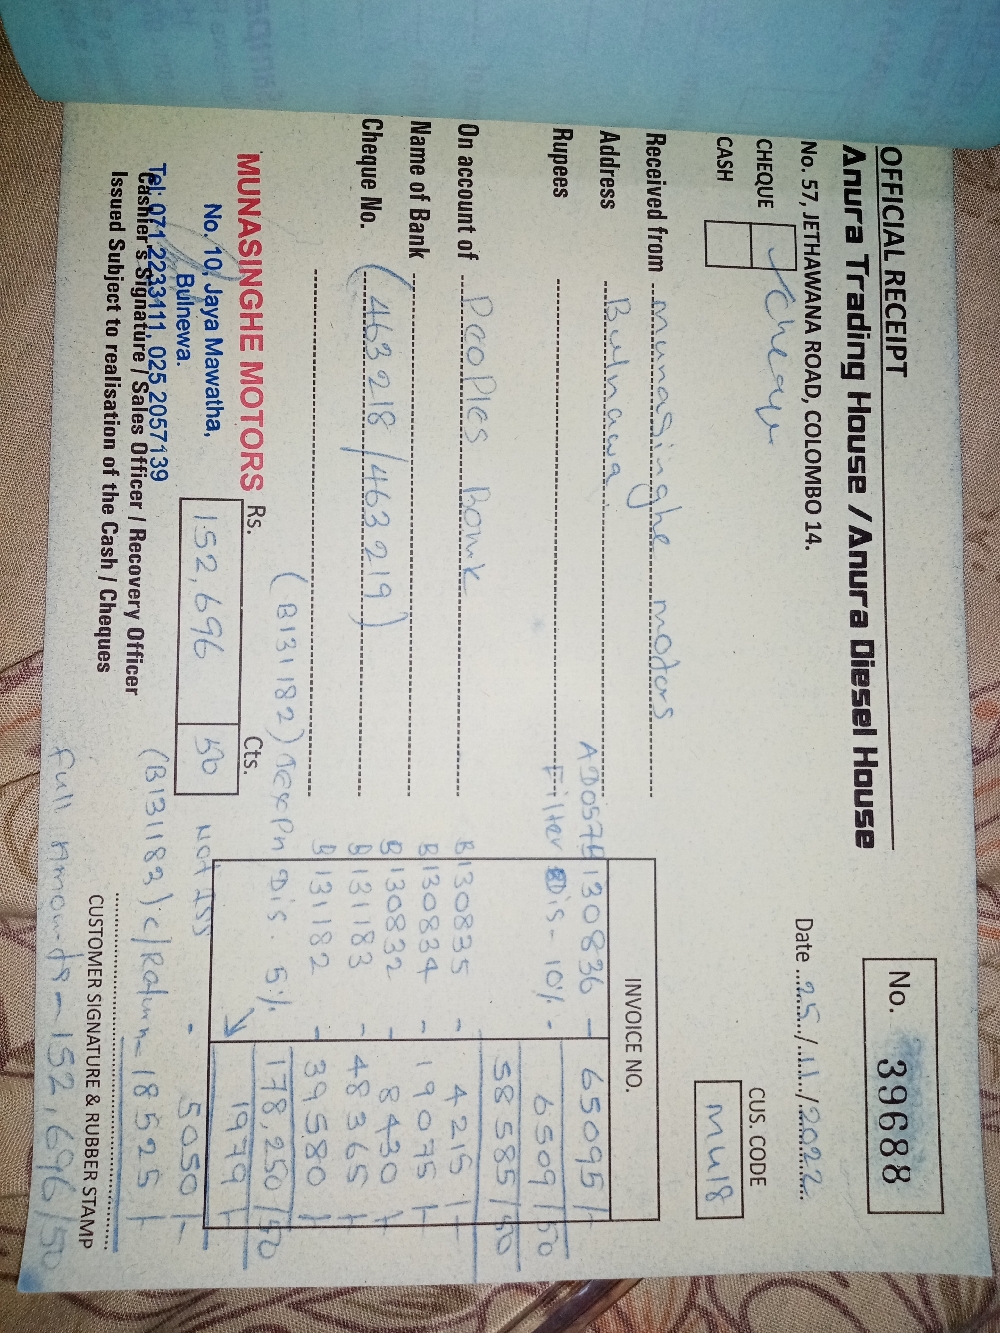 OFFICIAL RECEIPT
No. 39688
Anura Trading House / Anura Diesel House
No. 57, JETHAWANA ROAD, COLOMBO 14.
Date 25/11/2022
CHEQUE
CASH
CUS. CODE
MU18
Received from munasinghe motors
Address Bulnawa
Rupees
On account of Peoples Bank
Name of Bank
Cheque No. (463218/463219)
INVOICE NO.
AD057 B130836 - 65095/-
Filter Dis - 10% - 6509/50
58585/50
B130835 - 4215/-
B130834 - 19075/-
B130832 - 8430/-
B131183 - 48365/-
B131182 - 39580/-
178,250/50
(B131182) Dis. 5% 1979/-
MUNASINGHE MOTORS
No. 10, Jaya Mawatha,
Bulnewa.
Tel: 071 2233111, 025 2057139
Rs. Cts.
152,696 50
Not - 5050/-
(B131182) c/Return - 18525/-
Full Amounts - 152,696/50
Cashier's Signature / Sales Officer / Recovery Officer
Issued Subject to realisation of the Cash / Cheques
CUSTOMER SIGNATURE & RUBBER STAMP